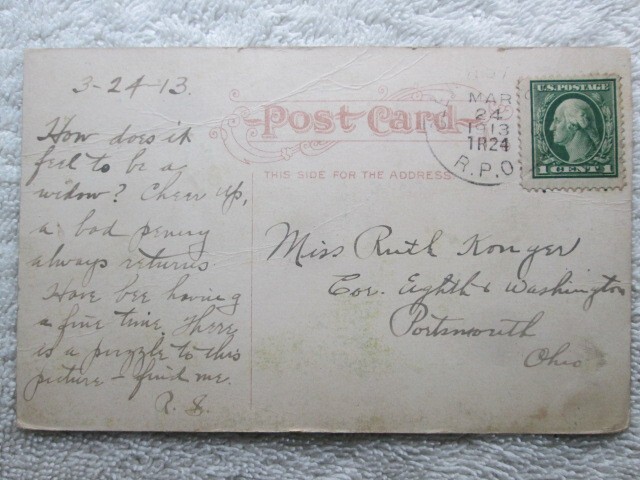 3-24-13.
How does it
feel to be a
widow? Cheer up,
a bad penny
always returns
Have bee having
a fine time. There
is a puzzle to this
picture - find me.
R. S.
Post Card
THIS SIDE FOR THE ADDRESS.
MAR
24
1913
TR24
R.P.O
U.S. POSTAGE
1 CENT 1
Miss Ruth Konger
Cor. Eighth & Washington
Portsmouth
Ohio